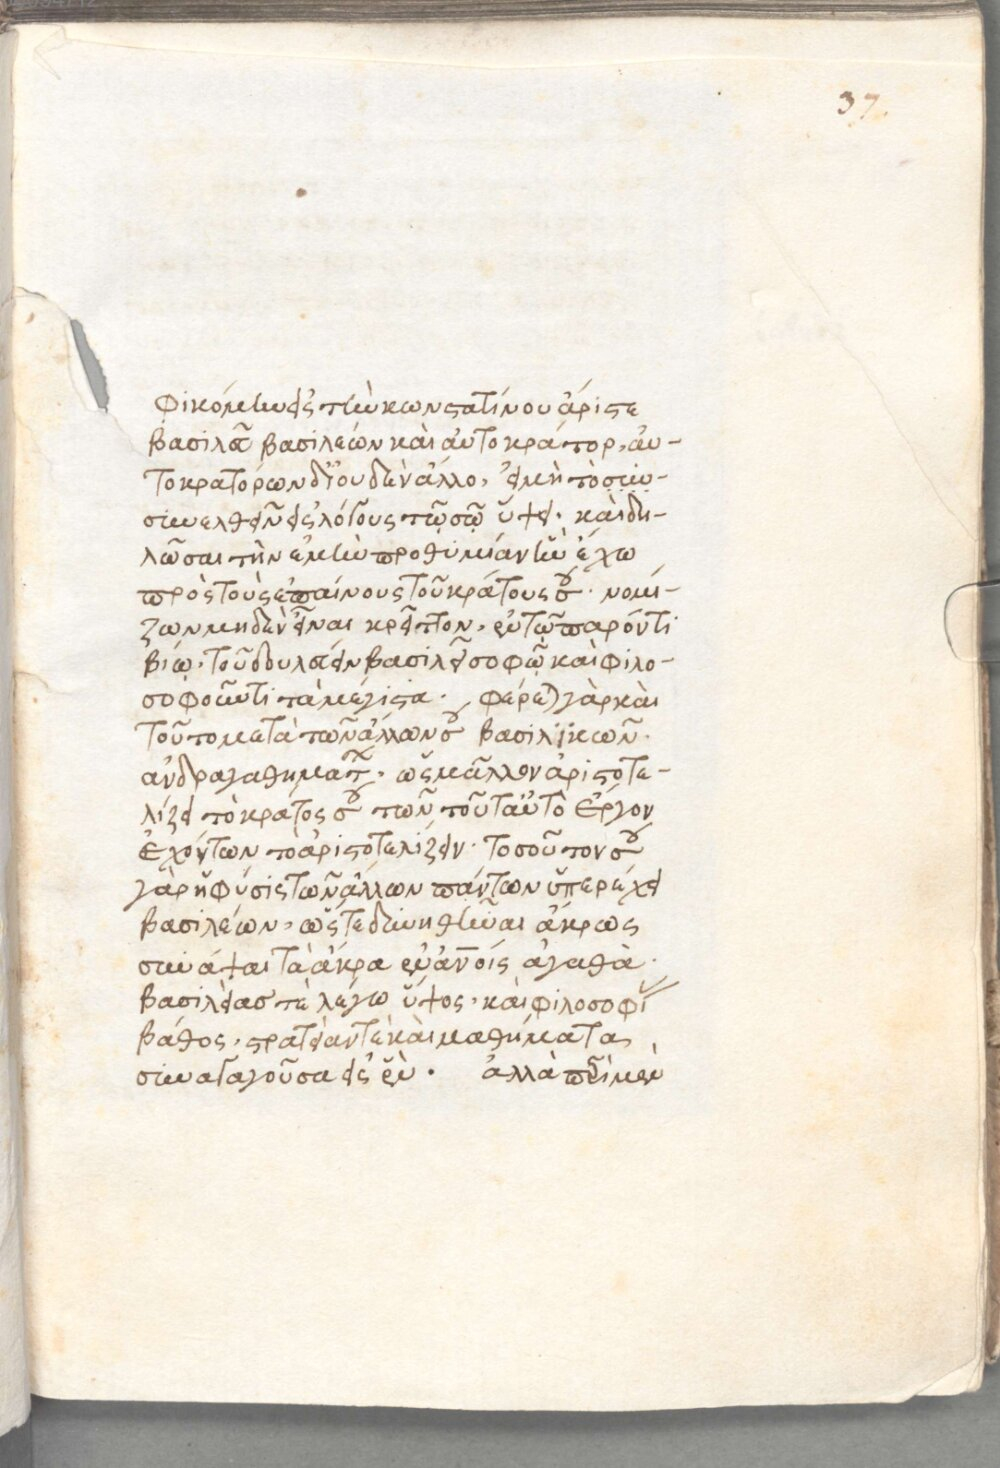 37.
Φικόμην εἰς τὴν κωνσταντίνου ἄριστε
βασιλεῦ βασιλεών καὶ αὐτοκράτορ, αὐ-
τοκρατόρων δι' οὐδὲν ἄλλο, εἰ μὴ τὸ
συνελθεῖν εἰς λόγους τῷ σῷ ὕψει· καὶ δη-
λῶσαι τὴν ἐμὴν προθυμίαν ἣν ἔχω
πρὸς τοὺς ἐπαίνους τοῦ κράτους σου· νομί-
ζων μηδὲν εἶναι κρεῖττον, ἐν τῷ παρόντι
βίῳ, τοῦ δουλεύειν βασιλεῖ σοφῷ καὶ φιλο-
σοφοῦντι τὰ μέγιστα· φέρεται γὰρ καὶ
τοῦτο μετὰ τῶν ἄλλων σου βασιλικῶν
ἀνδραγαθημάτων, ὡς μᾶλλον ἀριστοτε-
λίζει τὸ κράτος σου τῶν τοῦτ' αὐτὸ ἔργον
ἐχόντων τὸ ἀριστοτελίζειν· τοσοῦτον σου
γὰρ ἡ φύσις τῶν ἄλλων πάντων ὑπερέχει
βασιλέων, ὥστε δυνηθῆναι ἄκρως
συνάψαι τὰ ἄκρα ἐν ἀνοις ἀγαθὰ·
βασιλείας τὲ λέγω ὕψος, καὶ φιλοσοφίας
βάθος, στρατείαν τὲ καὶ μαθήματα
συναγαγοῦσα εἰς ἓν· ἀλλὰ περὶ μὲν